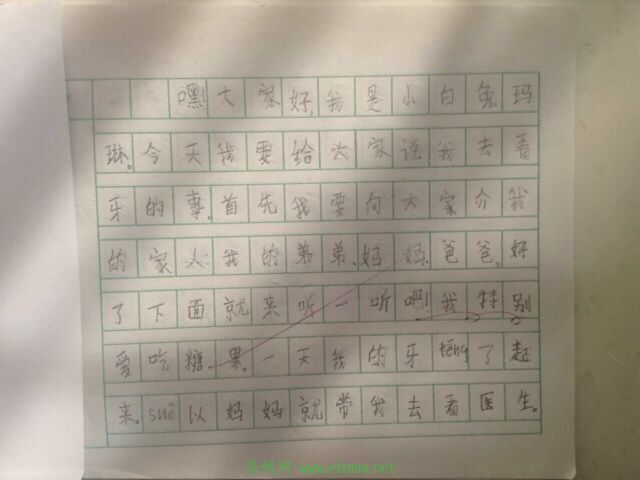 嘿大家好,我是小白兔玛
琳。今天我要给大家说我去看
牙的事。首先我要向大家介我
的家人:我的弟弟、妈妈、爸爸。好
了下面就来听一听吧!我特别
爱吃糖果。一天我的牙téng了起
来。suǒ以妈妈就带我去看医生。
www.ebama.net